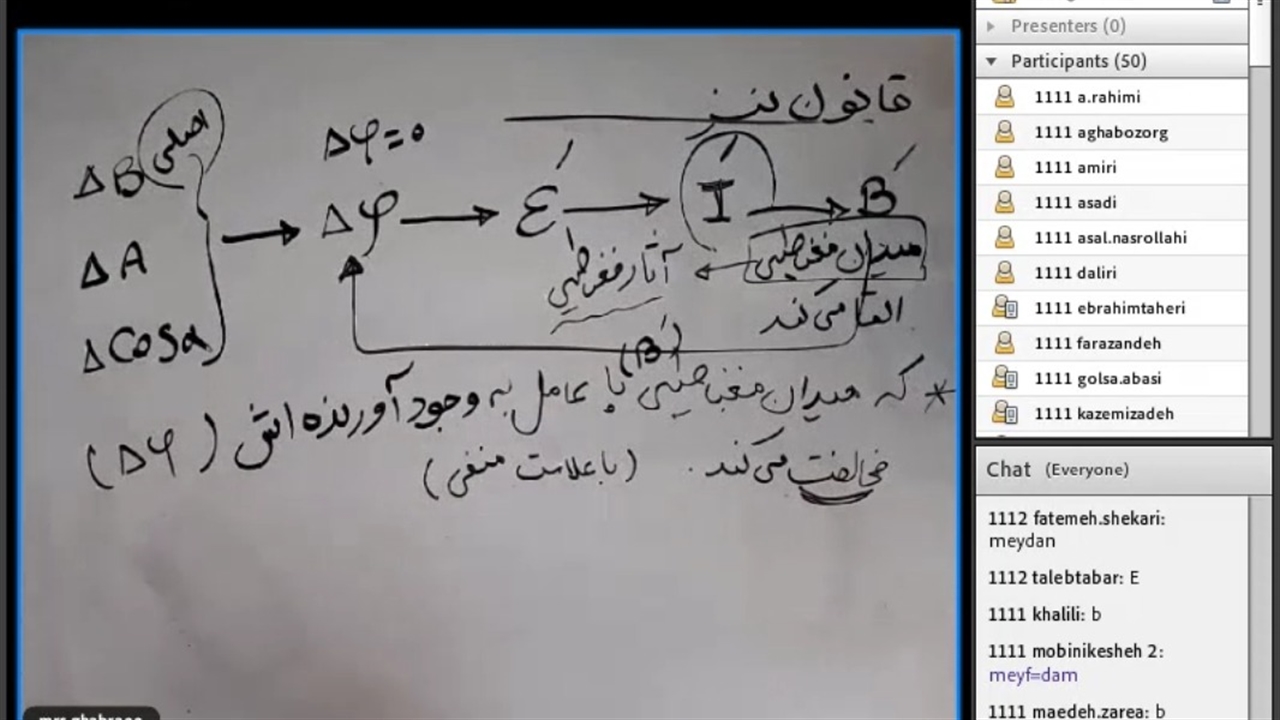 قانون لنز
ΔB اصلی
ΔA
Δcosα
Δφ=0
Δφ → ε′ → I′ → B′
میدان مغناطیسی
آثار مغناطیسی
القا می‌کند
(B′)
* که میدان مغناطیسی با عامل به وجود آورنده اش (Δφ)
مخالفت می‌کند. (با علامت منفی)
Presenters (0)
Participants (50)
1111 a.rahimi
1111 aghabozorg
1111 amiri
1111 asadi
1111 asal.nasrollahi
1111 daliri
1111 ebrahimtaheri
1111 farazandeh
1111 golsa.abasi
1111 kazemizadeh
Chat (Everyone)
1112 fatemeh.shekari:
meydan
1112 talebtabar: E
1111 khalili: b
1111 mobinikesheh 2:
meyf=dam
1111 maedeh.zarea: b